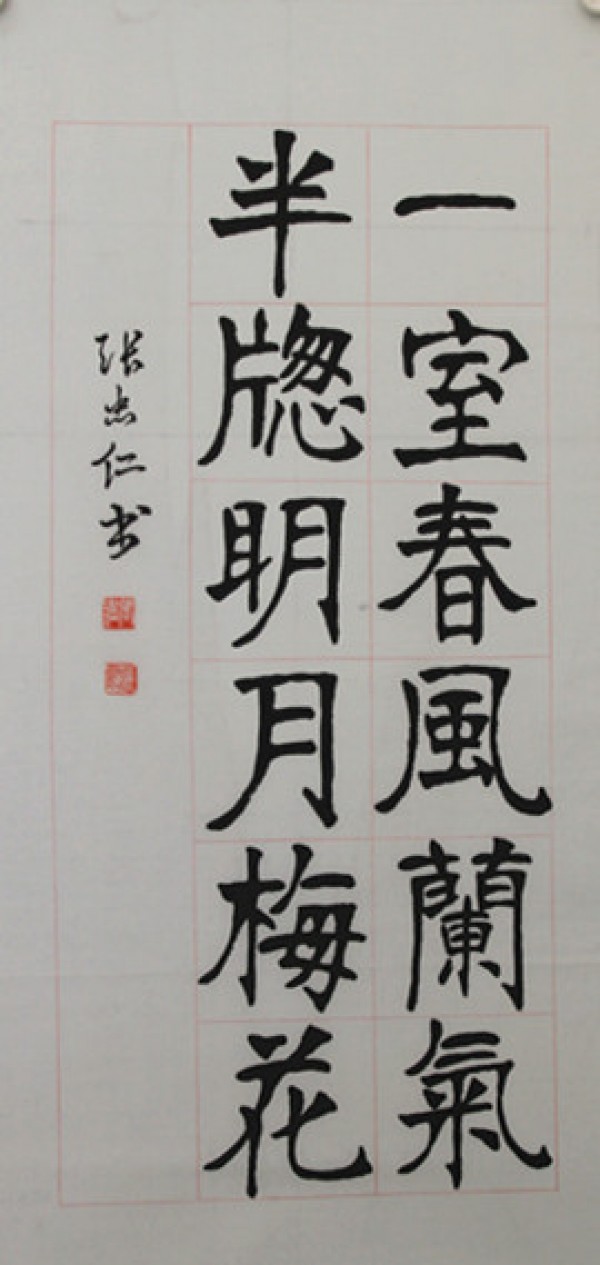 一室春風蘭氣
半牕明月梅花
张忠仁书